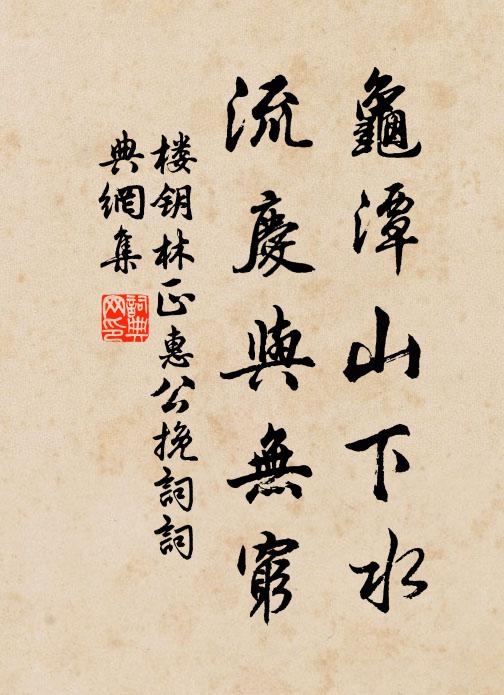 龜潭山下水
流慶與無窮
楼钥林正惠公挽詞詞
典網集
詞典網印